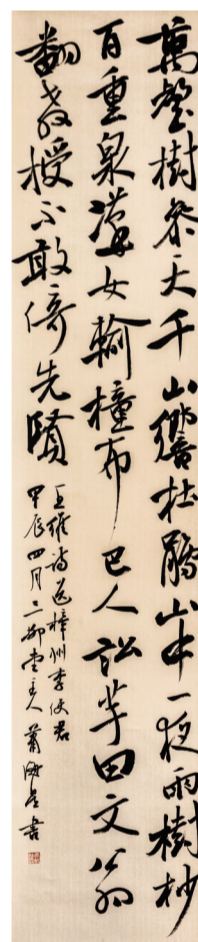 萬壑樹參天千山響杜鵑山中一夜雨樹杪
百重泉漢女輸橦布巴人訟芋田文翁
翻教授不敢倚先賢
王維詩送梓州李使君
甲辰四月二堂主人蕭書